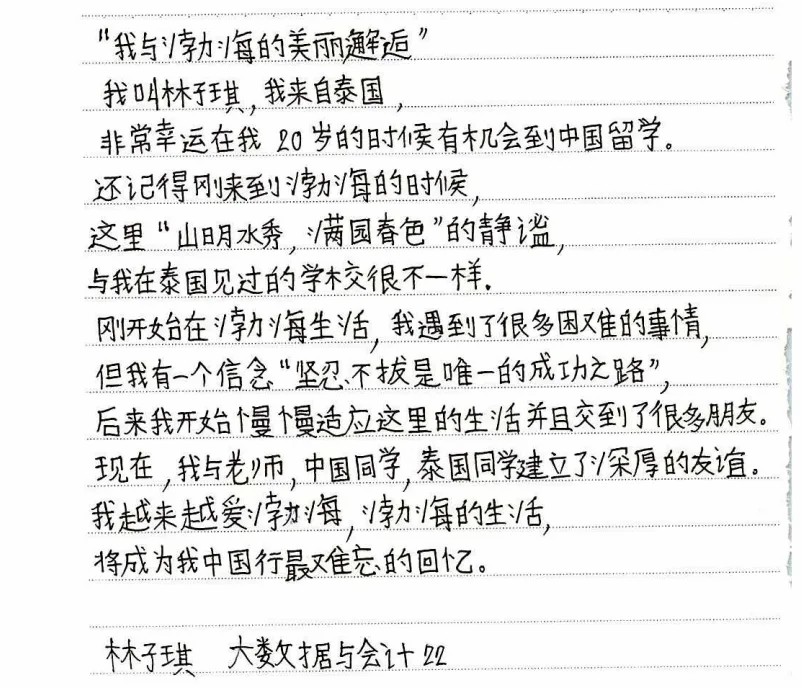 “我与渤海的美丽邂逅”
我叫林子琪,我来自泰国,
非常幸运在我 20 岁的时候有机会到中国留学。
还记得刚来到渤海的时候,
这里“山明水秀,满园春色”的静谧,
与我在泰国见过的学校很不一样.
刚开始在渤海生活,我遇到了很多困难的事情,
但我有一个信念“坚忍不拔是唯一的成功之路”,
后来我开始慢慢适应这里的生活并且交到了很多朋友。
现在,我与老师,中国同学,泰国同学建立了深厚的友谊。
我越来越爱渤海,渤海的生活,
将成为我中国行最难忘的回忆。
林子琪 大数据与会计 22